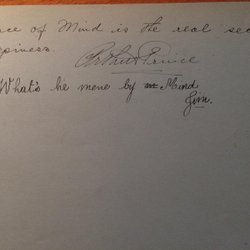 ace of Mind is the real sec
ppiness.
Arthur Prince
What's he mene by m Mind
Jim.